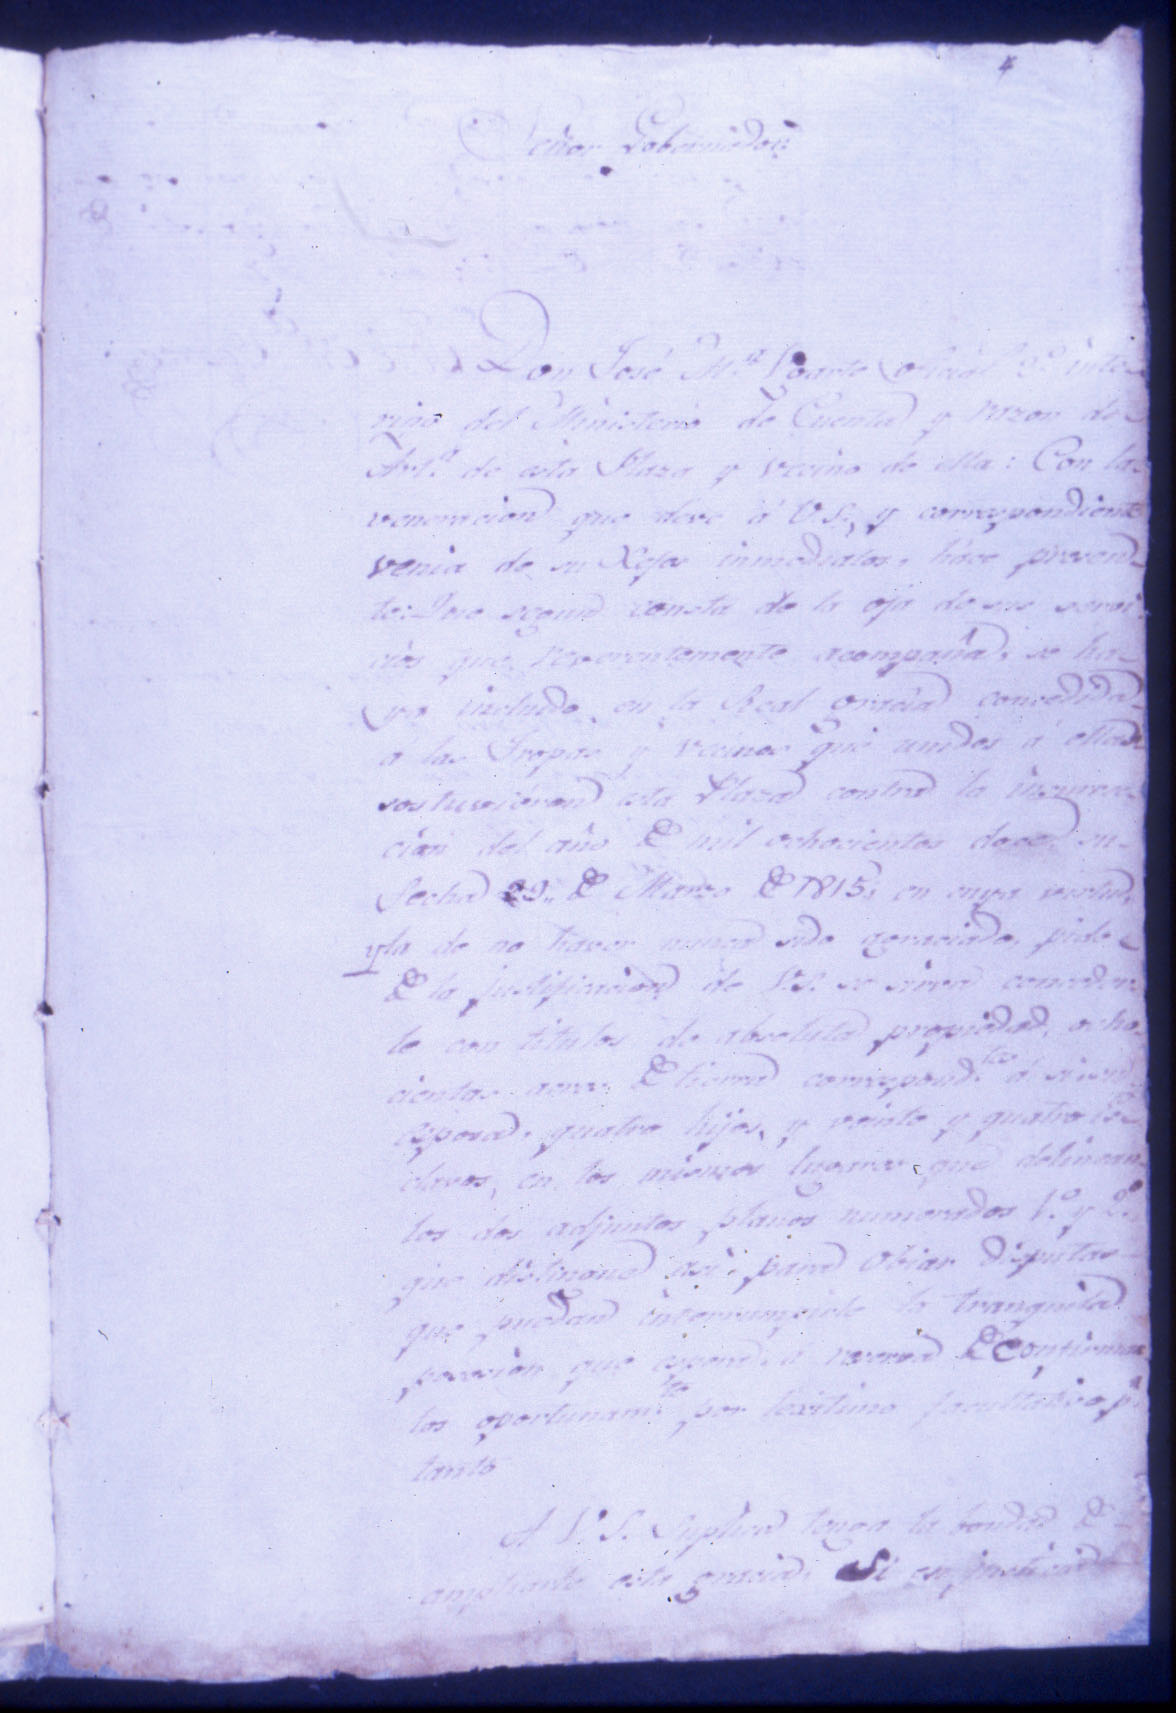 4
Señor Gobernador:
Don José M.ª Ugarte oficial 2.º inte-
rino del Ministerio de Cuenta y razon de
Art.ª de esta Plaza y vecino de ella: Con la
veneracion que deve á V.S., y correspondiente
venia de su Xefes inmediatos, háce presen-
te: Que segun consta de la oja de sus servi-
cios que reverentemente acompaña, se ha-
ya incluido en la Real gracia concedida
á las Tropas y vecinos que unidos á ellas
sostuvieron esta Plaza contra la insurrec-
cion del año de mil ochocientos doce, su
fecha 29,, de Marzo de 1815, en cuya virtud,
y la de no haver nunca sido agraciado, pide
de la justificacion de V.S. se sirva conceder-
le con titulos de absoluta propiedad, ocho-
cientas acres de tierra correspond.tes á si, su
esposa, quatro hijos, y veinte y quatro es-
clavos, en los mismos lugares que delinean
los dos adjuntos planos numerados 1.º y 2.º
que distingue asi para obiar disputas
que puedan interrumpirle la tranquila
posesion que espera, á reserva de confirmar
los oportunam.te por lexitimo facultativo p.r
tanto
A V.S. Suplica tenga la bondad de
ampliarle esta gracia, Si es justicia